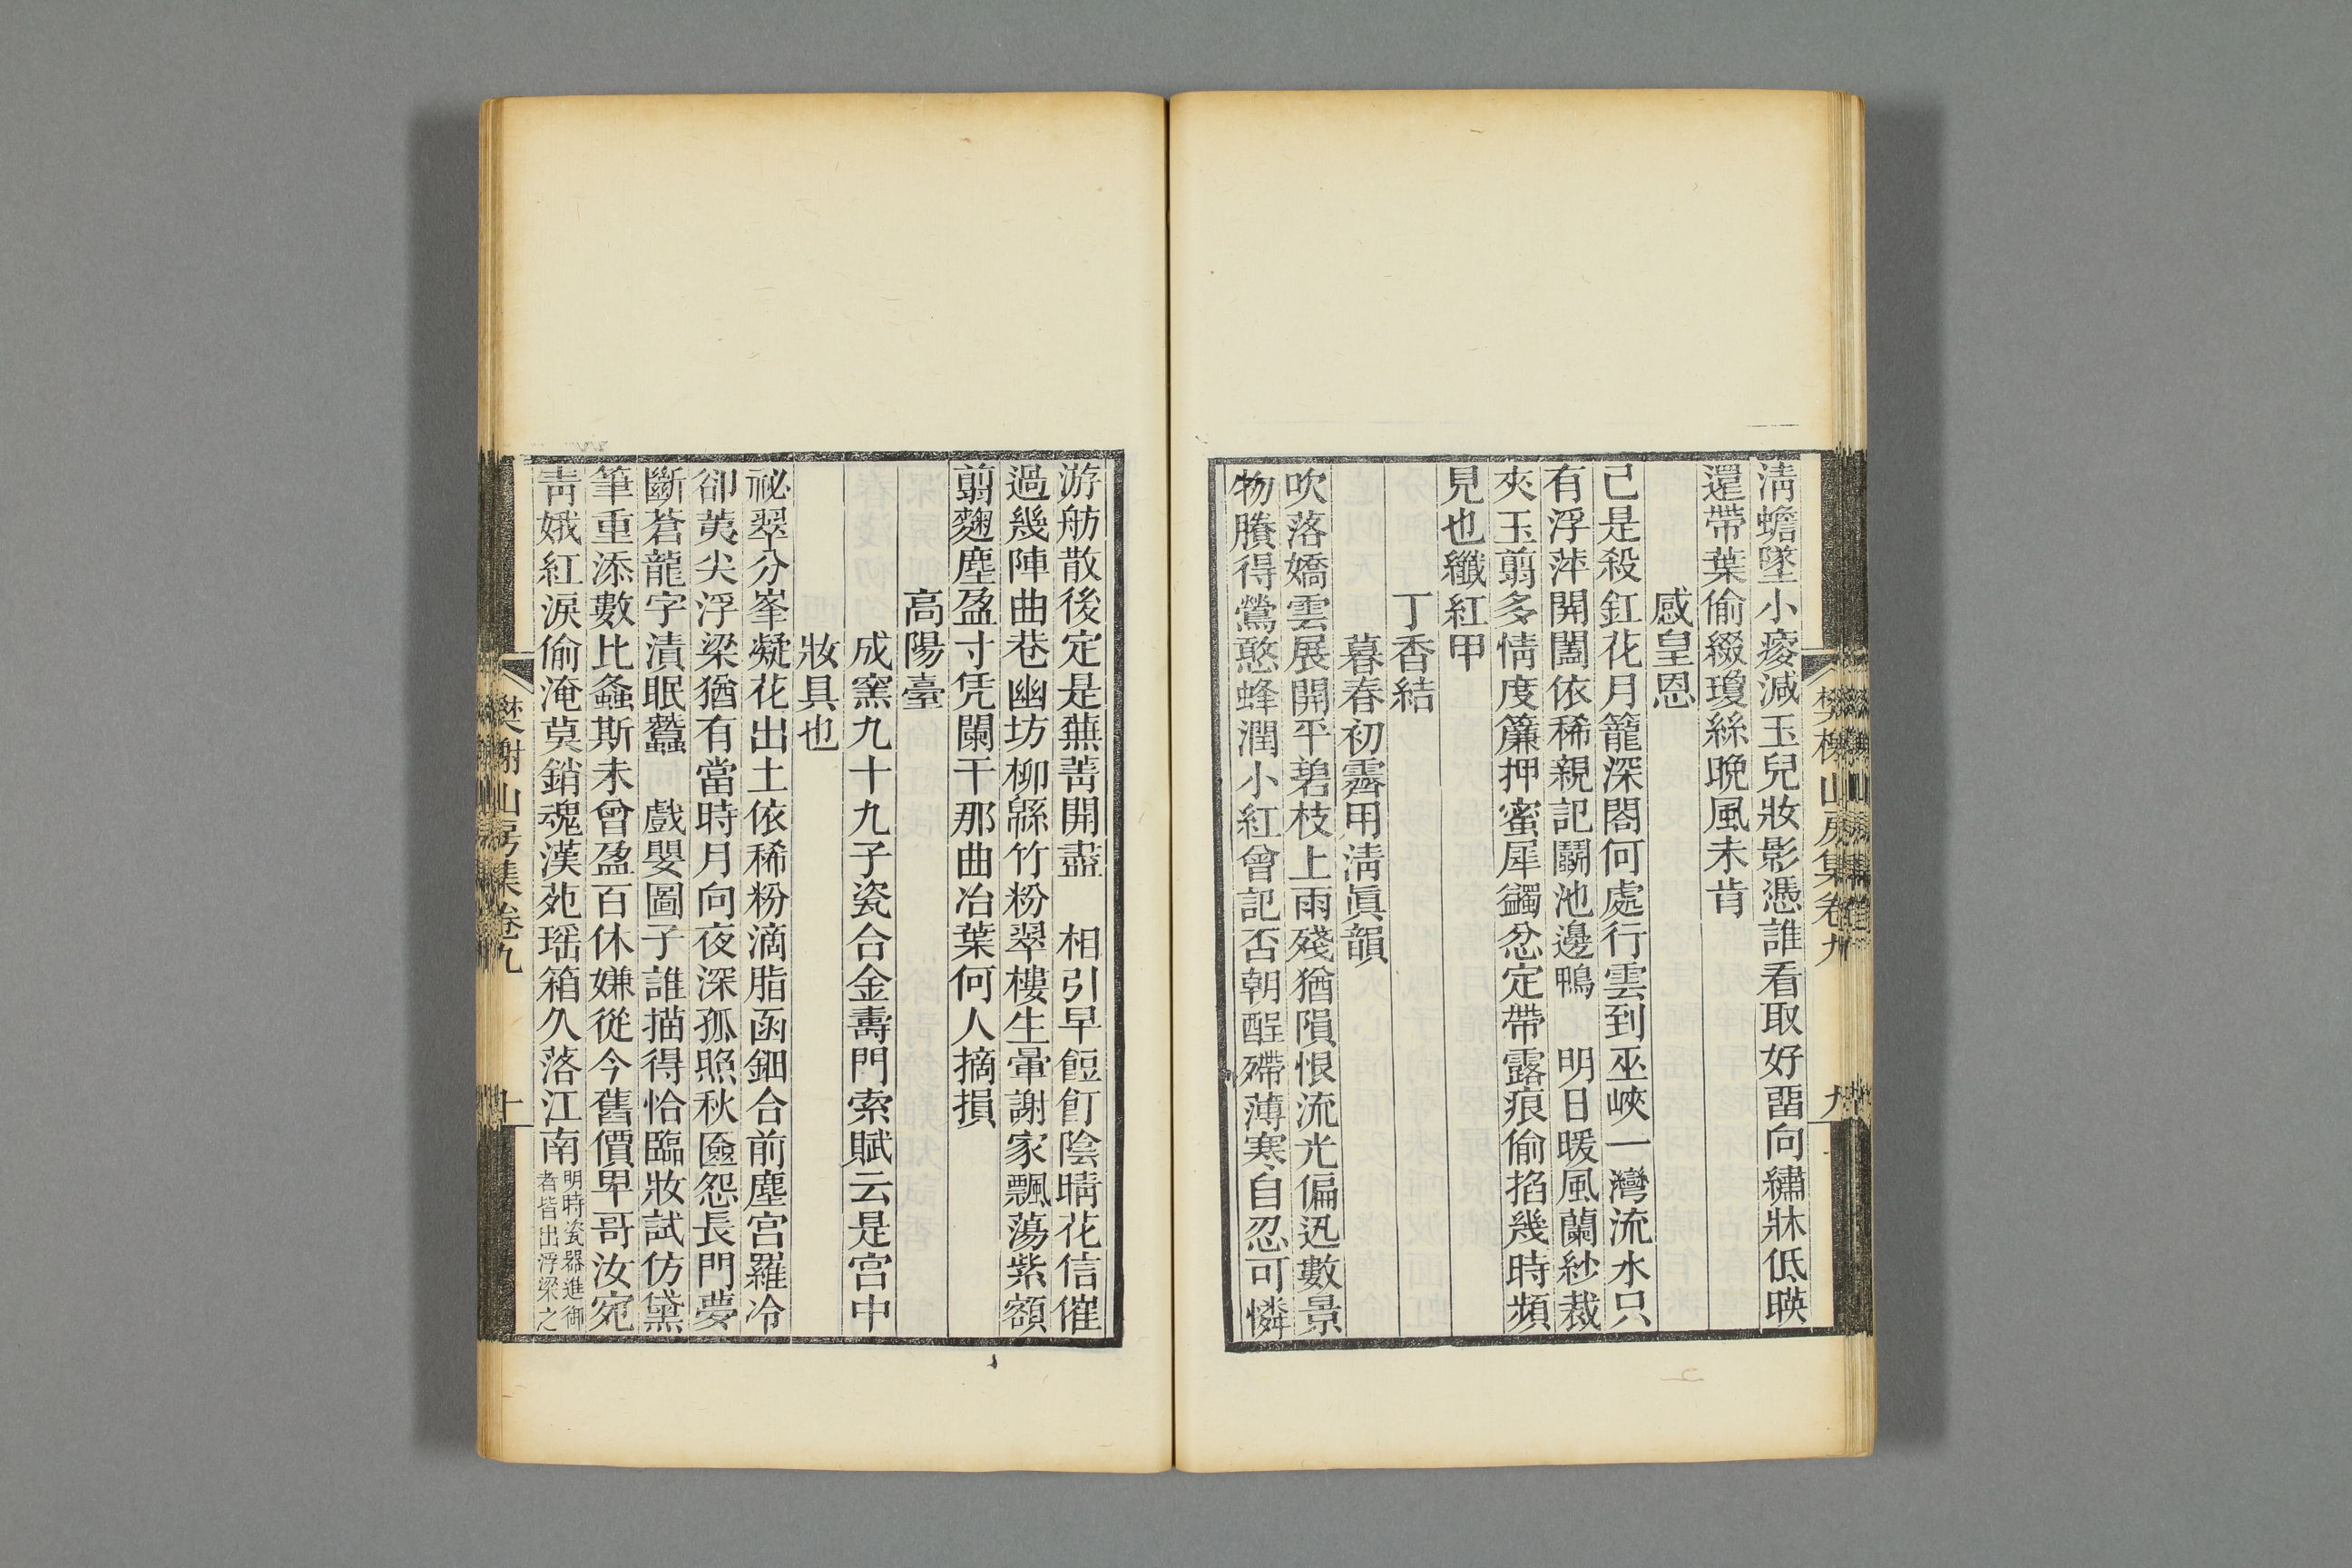 清蟾墜小㾭減玉兒妝影憑誰看取好畱向繡牀低暎
還帶葉偷綴瓊絲晚風未肯
感皇恩
己是殺釭花月籠深閣何處行雲到巫峽一灣流水只
有浮萍開闔依稀親記鬭池邊鴨　明日暖風蘭紗裁
夾玉翦多情度簾押蜜犀蠲忿定帶露痕偷掐幾時頻
見也纖紅甲
丁香結
暮春初霽用淸眞韻
吹落嬌雲展開平碧枝上雨殘猶隕恨流光偏迅數景
物賸得鶯憨蜂潤小紅曾記否朝酲殢薄寒自忍可憐
樊榭山房集卷九
九
游舫散後定是蕪菁開盡　相引早餖飣陰晴花信催
過幾陣曲巷幽坊柳緜竹粉翠樓生暈謝家飄蕩紫額
翦麴塵盈寸凭闌干那曲冶葉何人摘損
高陽臺
成窯九十九子瓷合金壽門索賦云是宮中
妝具也
祕翠分峯凝花出土依稀粉滴脂函鈿合前塵宮羅冷
卻荑尖浮梁猶有當時月向夜深孤照秋匳怨長門夢
斷蒼龍字漬眠蠶　戲嬰圖子誰描得恰臨妝試仿黛
筆重添數比螽斯未曾盈百休嫌從今舊價卑哥汝宛
靑娥紅淚偷淹莫銷魂漢苑瑶箱久落江南
明時瓷器進御
者皆出浮梁之
樊榭山房集卷九
十